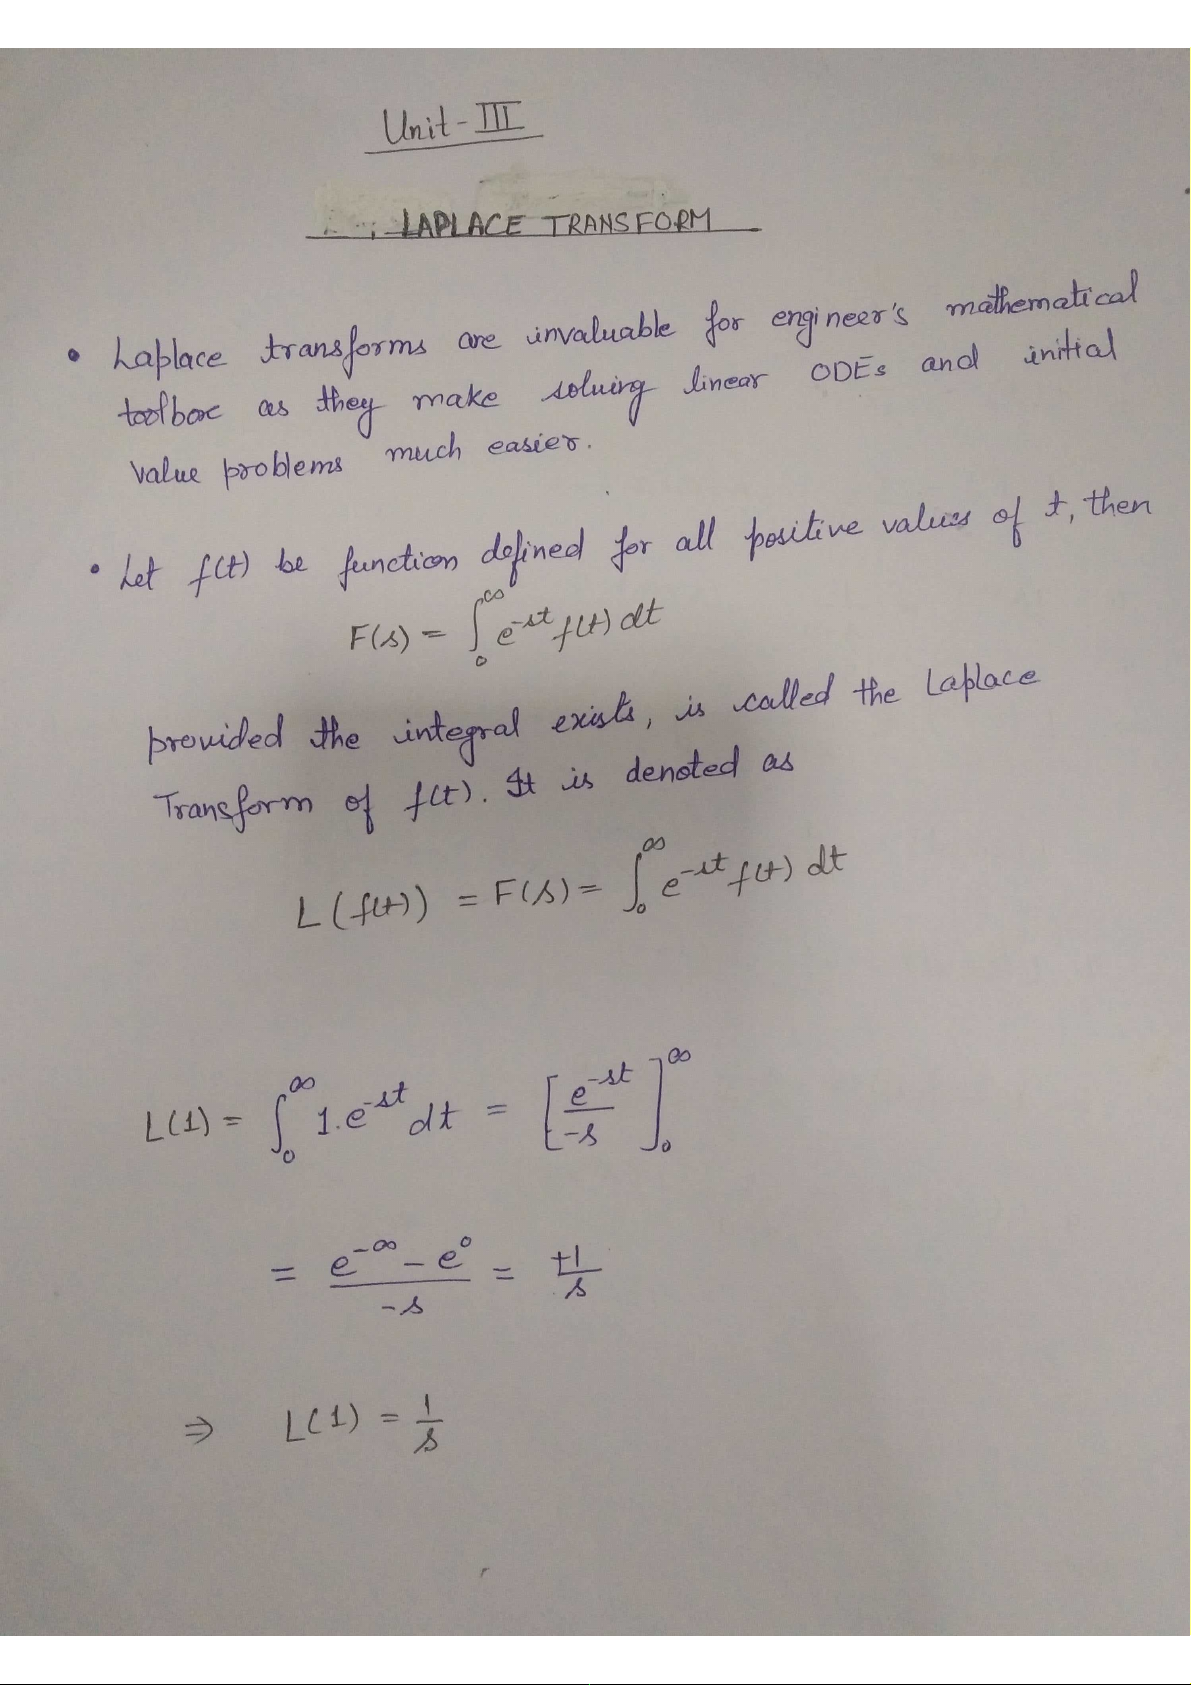 Unit - III
LAPLACE TRANSFORM
• Laplace transforms are invaluable for engineer's mathematical
toolbox as they make solving linear ODEs and initial
value problems much easier.
• Let f(t) be function defined for all positive values of t, then
F(s) = ∫₀^∞ e^{-st} f(t) dt
provided the integral exists, is called the Laplace
Transform of f(t). It is denoted as
L(f(t)) = F(s) = ∫₀^∞ e^{-st} f(t) dt
L(1) = ∫₀^∞ 1.e^{-st} dt = [e^{-st}/-s]₀^∞
= (e^{-∞} - e^0)/-s = +1/s
⇒ L(1) = 1/s